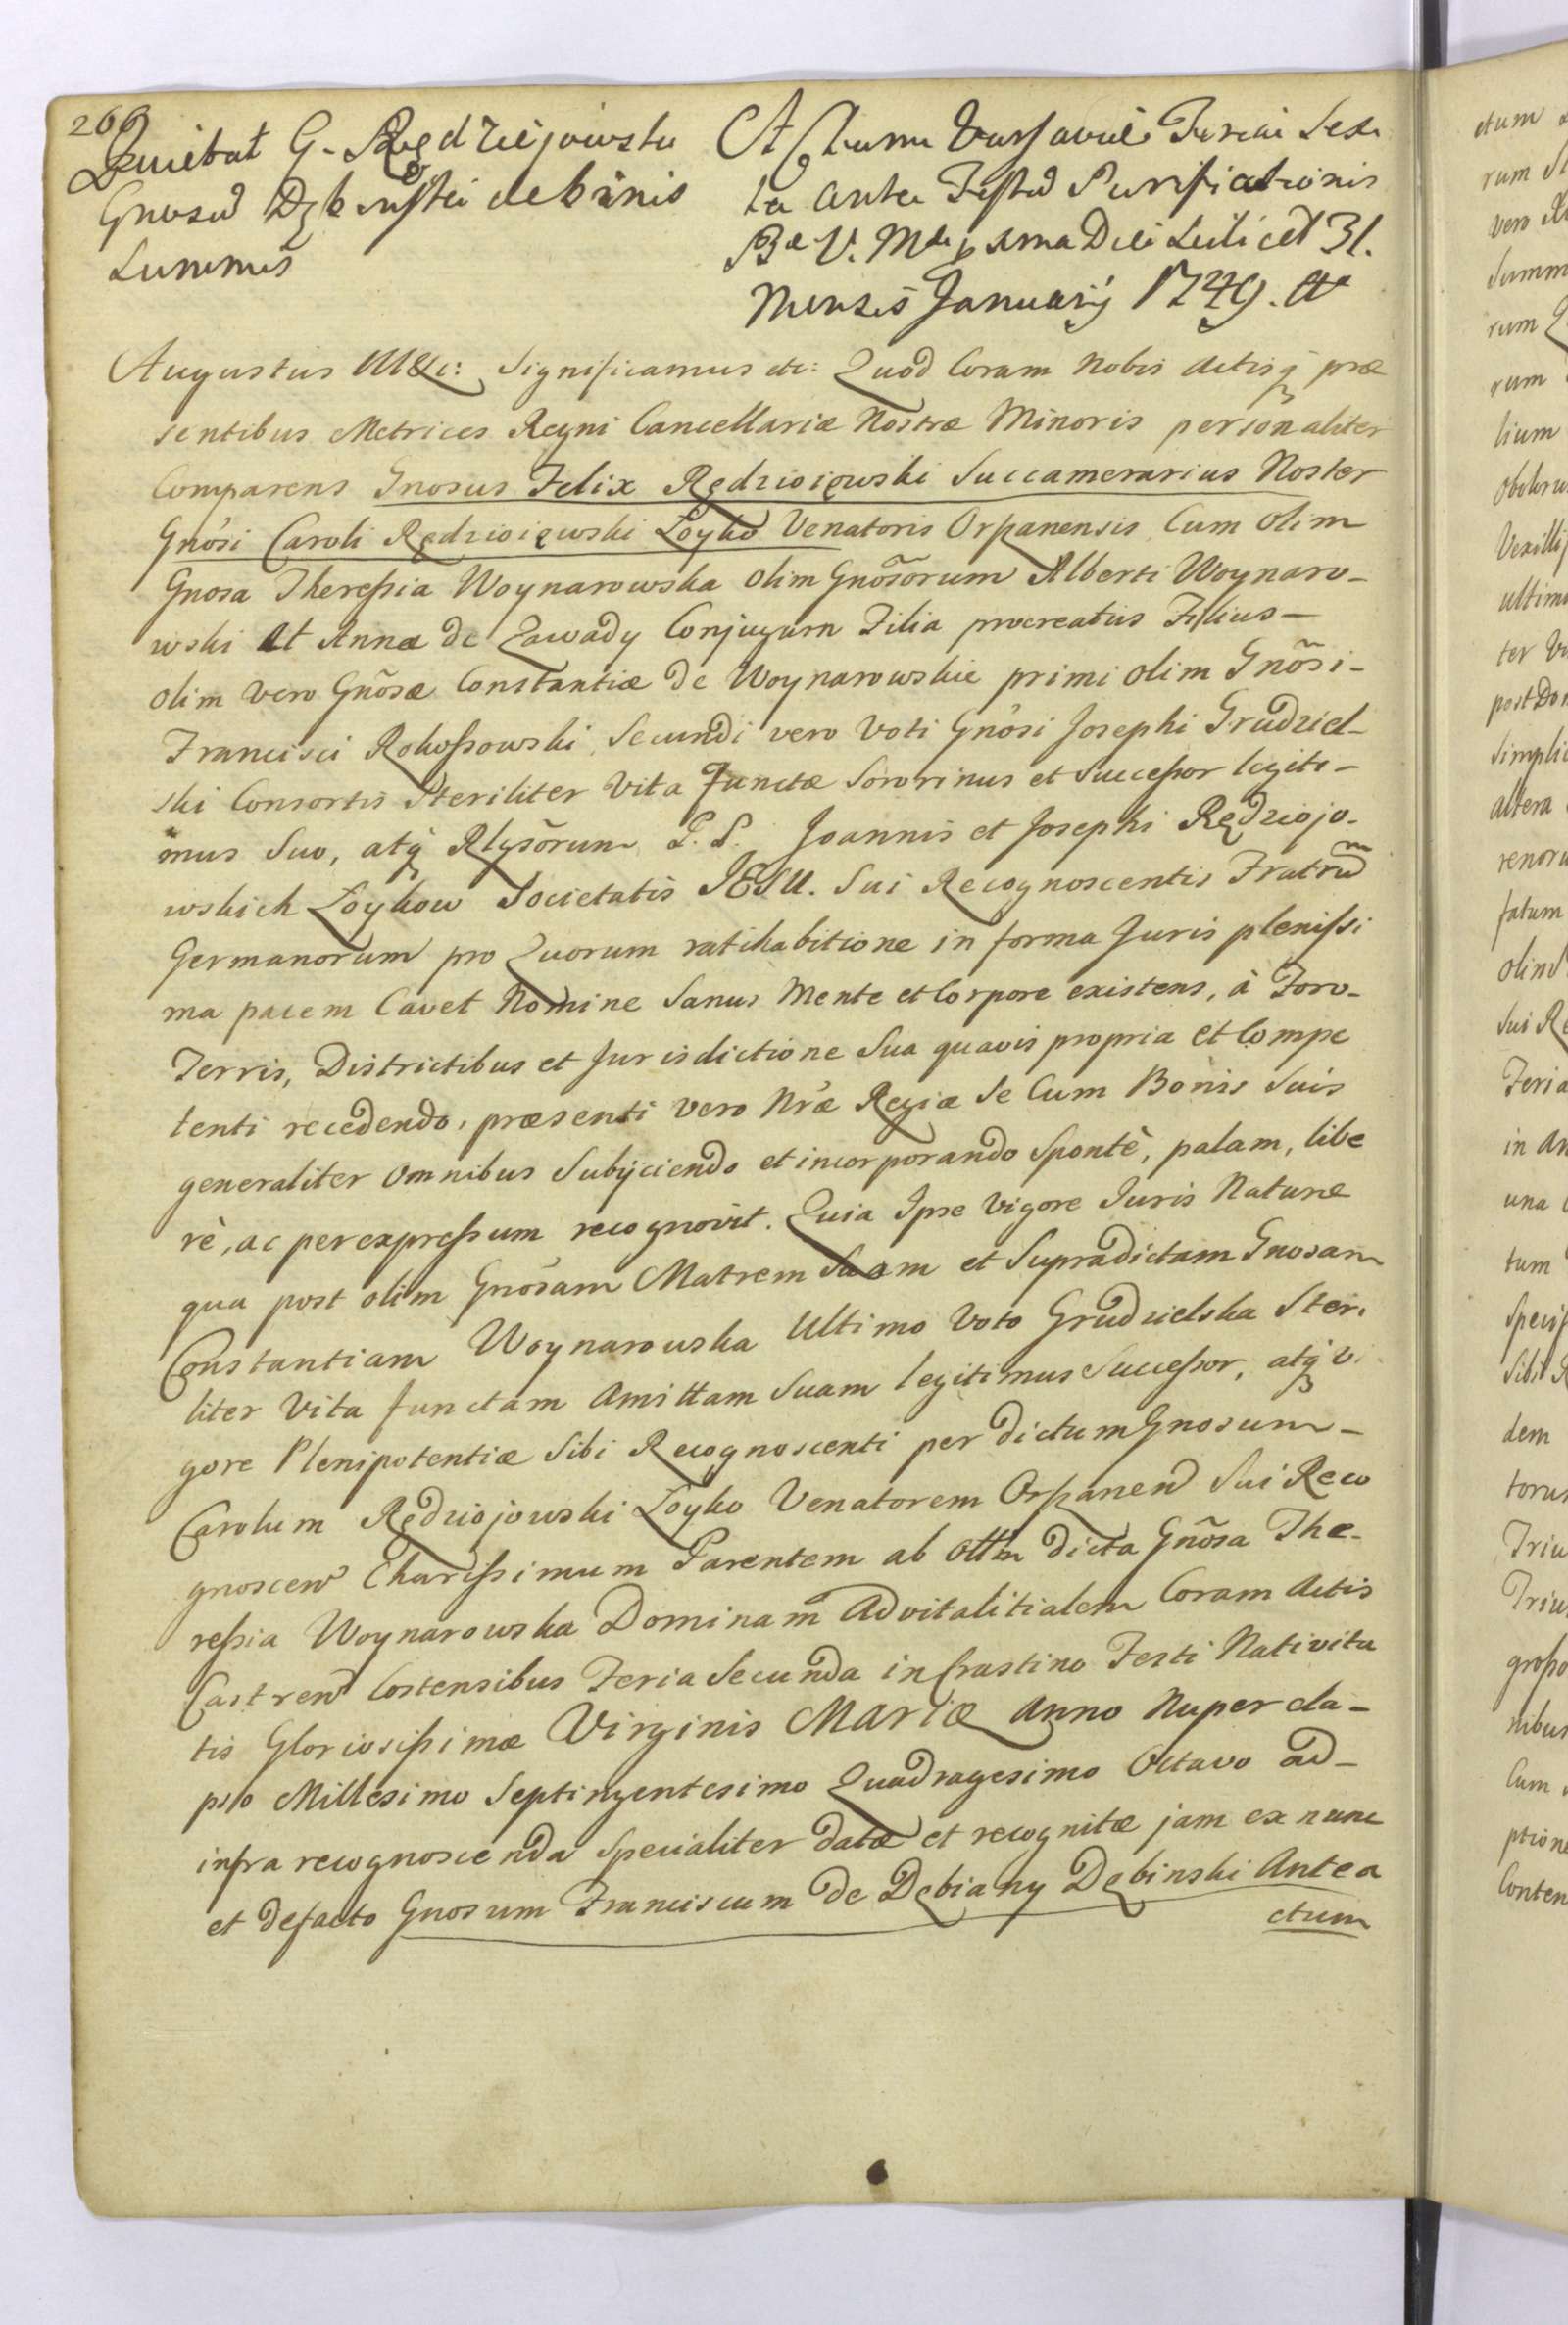 266
Quietat G. Rędziejowski
Gnosū Dębinski de binis
Summis
Actum Varsaviæ Feria Sex
ta Ante Festū Purificationis
Bæ V. Mæ prima Die Scilicet 31.
Mensis January 1749. Aº
Augustus III etc: Significamus etc: Quod Coram Nobis Actisq præ
sentibus Metrices Regni Cancellariæ Nostræ Minoris personaliter
Comparens Gnosus Felix Rędzioiewski Succamerarius Noster
Gnosi Caroli Rędzioiewski Łoyko Venatoris Orpanensis Cum Olim
Gnosa Theressia Woynarowska Olim Gnõsorum Alberti Woynaro-
wski Et Annæ De Zawady Conjugum Filia procreatus Filius-
Olim Vero Gnõsæ Constantiæ De Woynarowskie primi Olim Gnõsi-
Francisci Rokossowski Secundi vero Voti Gnosi Josephi Grudziel-
ski Consortis Steriliter Vita Functæ Sororinus et Successor legiti-
mus Suo, atq Rlgsõrum P.P. Joannis et Josephi Rędziojo-
wskich Łoykow Societatis JESU. Sui Recognoscentis Fratrum
Germanorum pro Quorum ratihabitione in forma Juris plenissi
ma pacem Cavet Nomine Sanus Mente et Corpore existens, à Foro-
Terris, Districtibus et Jurisdictione Sua quavis propria et Compe
tenti recedendo, præsenti Vero Nr̃æ Regiæ Se Cum Bonis Suis
generaliter Omnibus Subijciendo et incorporando Spontè, palam, libe
rè, ac per expressum recognovit. Quia Ipse Vigore Juris Naturæ
qua post olim Gnosam Matrem Suam et Supradictam Gnosam
Constantiam Woynarowska Ultimo Voto Grudzielska Steri
liter Vita functam Amittam Suam legitimus Successor, atq vi
gore Plenipotentiæ Sibi Recognoscenti per Dictum Gnosum-
Carolum Rędziojowski Łoyko Venatorem Orpanen Sui Reco
gnoscen Charissimum Parentem ab Olim dicta Gñosa The-
ressia Woynarowska Dominam Advitalitialem Coram Actis
Castren Costensibus Feria Secunda in Crastino Festi Nativita
tis Gloriosissimæ Virginis MARIÆ Anno Nuper ela-
pso Millesimo Septingentesimo Quadragesimo Octavo ad-
infra recognoscenda Specialiter datæ et recognitæ jam ex nunc
et defacto Gnosum Franciscum De Dębiany Dębinski Antea
ctum